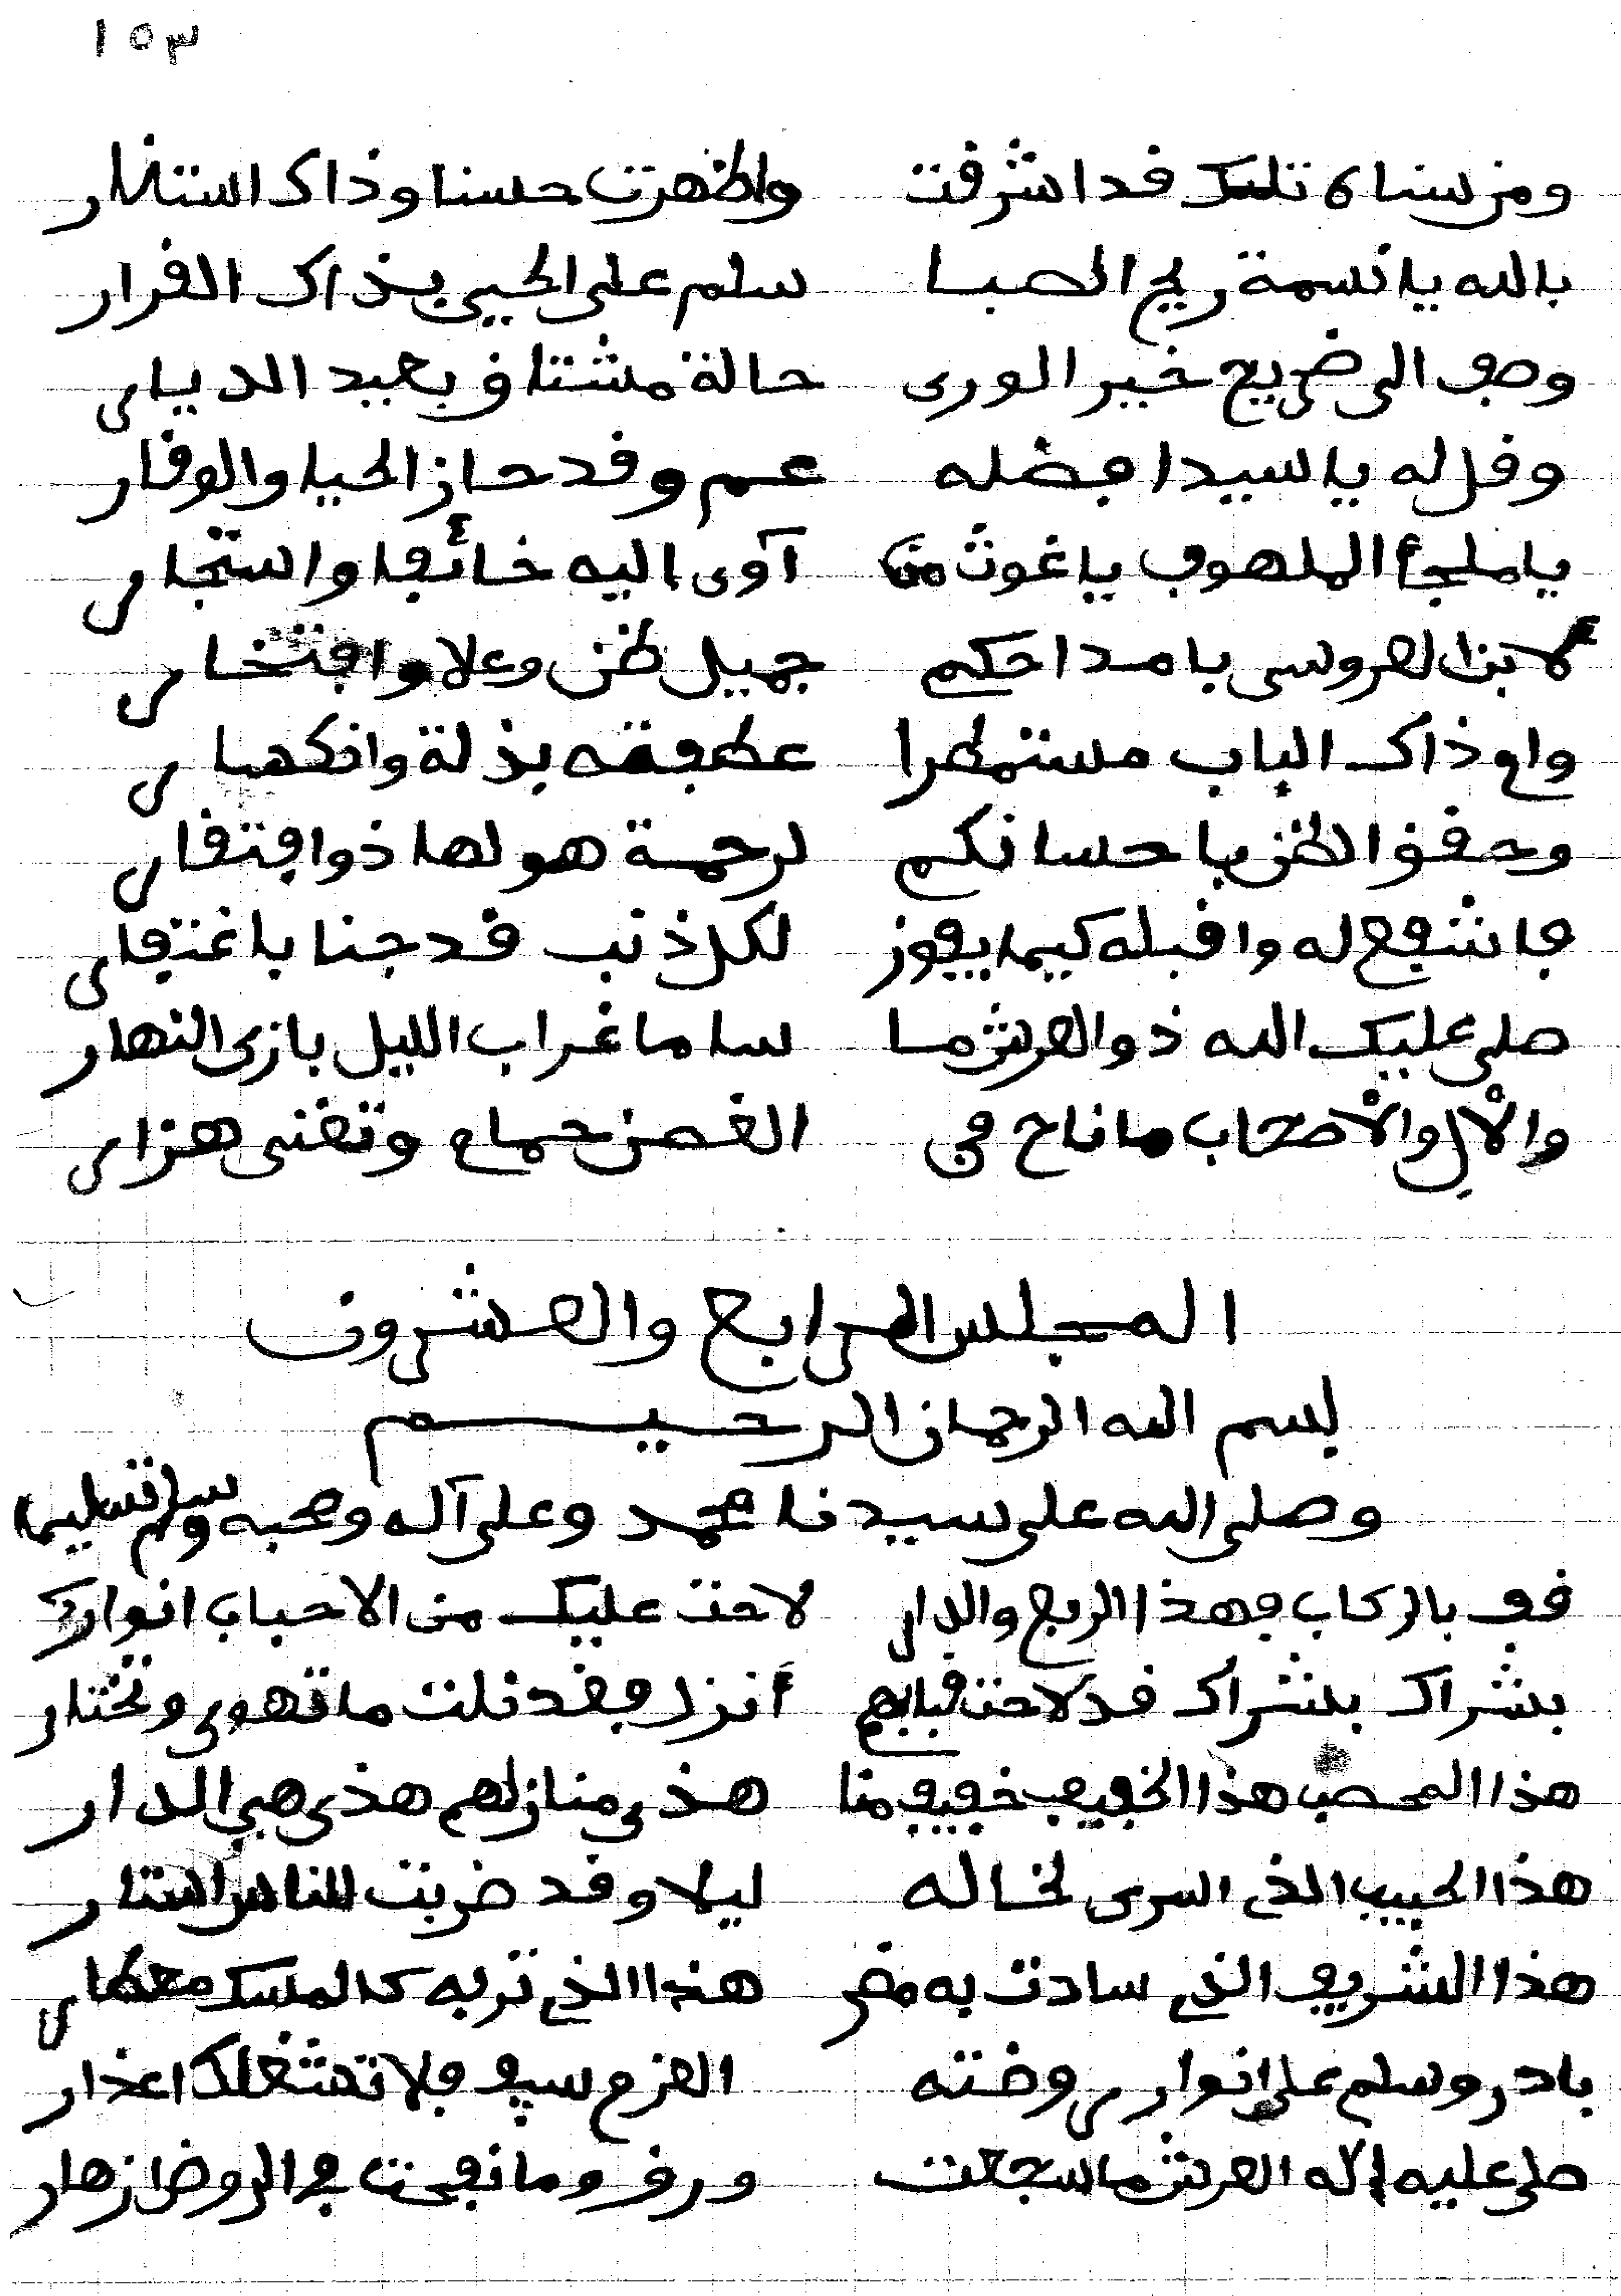 ١٥٣
ومن سناه تلك قد اشرقت واظهرت حسنا وذاك استنار
بالله يا نسمة ريح الصبا سلم على الحبيب بذاك القرار
وصف الى ضريح خير الورى حالة مشتاق بعيد الديار
وقل له يا سيدا فضله عم وقد حاز الحيا والوقار
يا ملجأ الملهوف يا غوث من آوى اليه خائفا واستجار
لابن العروسي يا مداحكم جميل ظن وعلا وافتخار
وام ذاك الباب مستمطرا عطفته بذلة وانكسار
وحقق الظن باحسانكم لرحمة هو لها ذو افتقار
فاشفع له واقبله كيما يفوز لكل ذنب قد جنا باغتفار
صلى عليك الله ذو العرش ما سام غراب الليل بازي النهار
والآل والأصحاب ما ناح في الغصن حمام وتغنى هزار
المجلس الرابع والعشرون
بسم الله الرحمان الرحيم
وصلى الله على سيدنا محمد وعلى آله وصحبه وسلم تسليما
قف بالركاب فهذا الربع والدار لاحت عليك من الاحباب انوار
بشراك بشراك قد لاحت قبابهم أنزل فقد نلت ما تهوى وتختار
هذا المحصب هذا الخيف خيف منا هذي منازلهم هذي هي الدار
هذا الحبيب الذي اسرى لخاله ليلا وقد ضربت للناس استار
هذا الشريف الذي سادت به مضر هذا الذي تربه كالمسك معطار
بادر وسلم على انوار روضته العزم سيف فلا تشغلك اعذار
صلى عليه إله العرش ما سجعت ورق وما نفحت في الروض ازهار